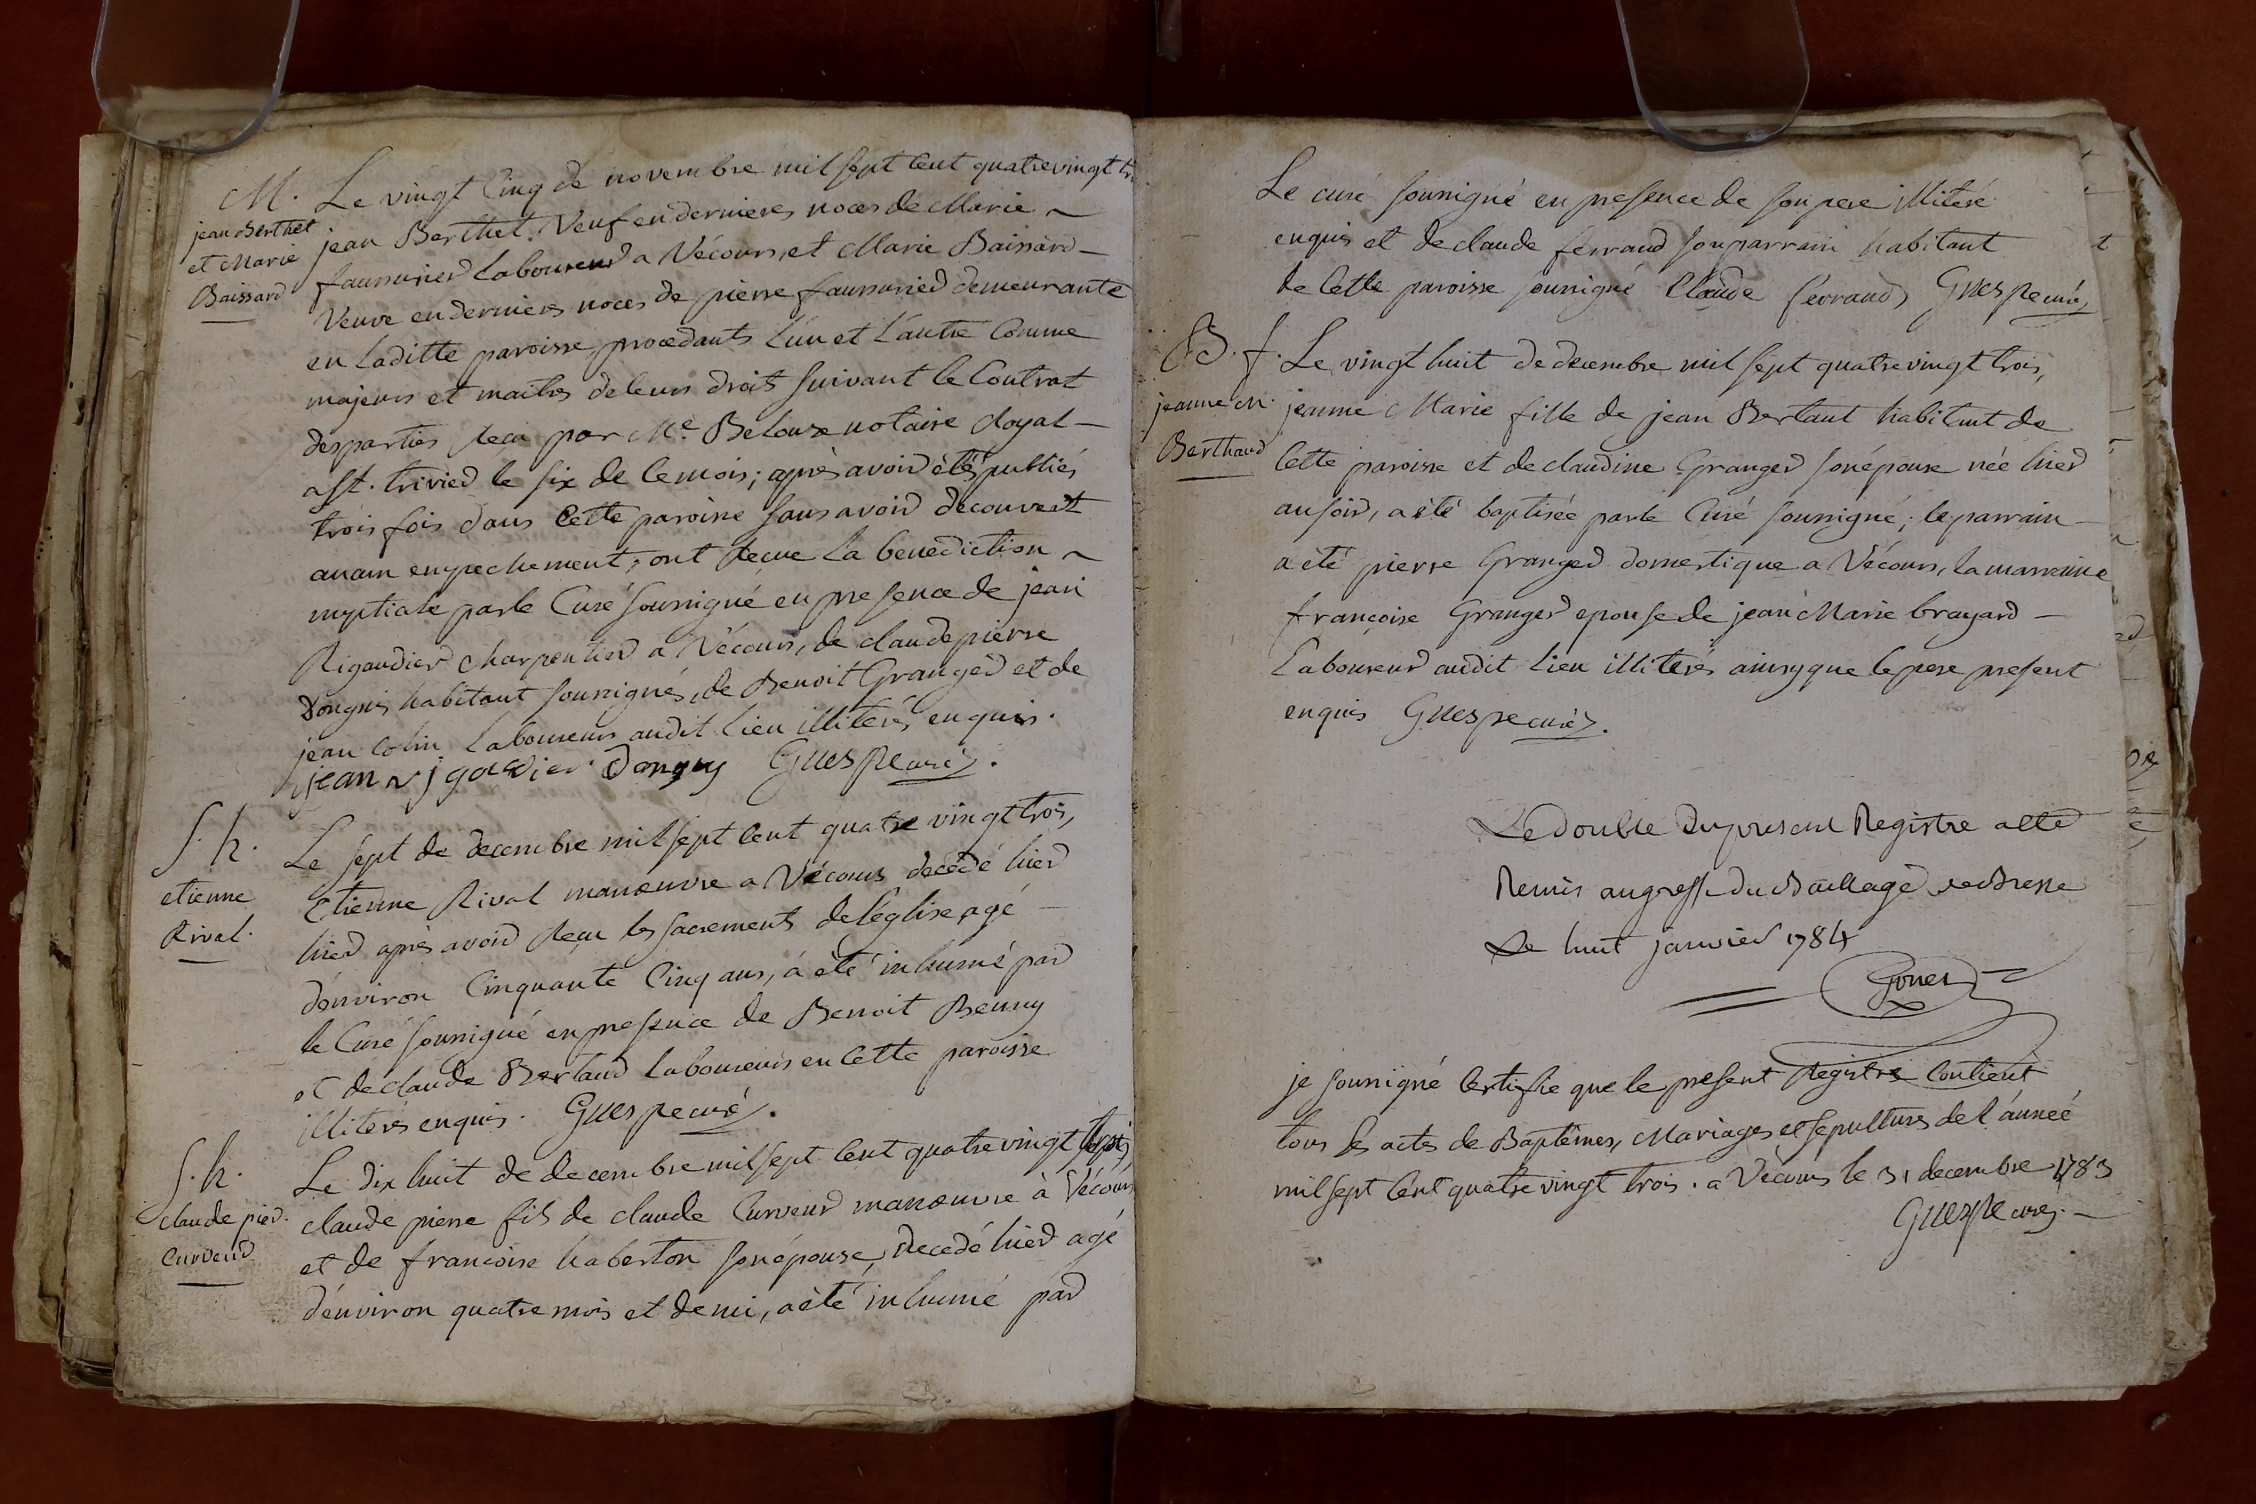 M.
jean Berthet
et Marie
Baissard
Le vingt Cinq de novembre mil sept Cent quatrevingt
jean Berthet Veuf en dernieres noces de Marie
faussurier laboureur a Vécours, et Marie Baissard
Veuve en dernieres noces de pierre faussurier demeurante
en laditte paroisse, procedants L'un et L'autre Comme
majeurs et maîtres de leurs droits suivant le Contrat
des parties reçu par Me. Belouze notaire Royal
a St. trivier le six de Ce mois; après avoir étés publiés
trois fois dans Cette paroisse sans avoir découvert
aucun empechement, ont recue La benediction
nuptiale par le Curé soussigné en presence de jean
Rigaudier charpentier a Vécours, de claude pierre
Donguis habitant soussignés, de Benoit Granger et de
jean Colin Laboureurs audit Lieu illiterés enquis.
jean rigaudier Donguy Guespe curé.
S. h.
etienne
Rival.
Le sept de decembre mil sept Cent quatre vingt trois,
Etienne Rival manœuvre a Vécours decédé hier
hier après avoir reçu les sacrements de l'église, agé
d'environ Cinquante Cinq ans, à été inhumé par
le Curé soussigné en presence de Benoit Benny
et de claude Bertaud Laboureurs en Cette paroisse
illiterés enquis. Guespe curé.
S. h.
claude pier.
Curveur
Le dix huit de decembre mil sept Cent quatre vingt trois
claude pierre fils de claude Curveur manœuvre à Vécours
et de francoise haberton son épouse, decedé hier agé
d'environ quatre mois et demi, a été inhumé par
Le curé soussigné en presence de son pere illiteré
enquis et de claude ferrand son parrain habitant
de Cette paroisse soussigné Claude ferrand Guespe curé
B. f.
jeanne M.
Berthaud
Le vingt huit de decembre mil sept quatre vingt trois,
jeanne Marie fille de jean Bertaut habitant de
Cette paroisse et de claudine Granger son épouse née hier
au soir, a été baptisée par le Curé soussigné; le parrain
a été pierre Granger domestique a Vécours, la marraine
françoise Granger epouse de jean Marie brayard
Laboureur audit Lieu illiterés ainsy que le pere present
enquis Guespe curé.
Le double du present Registre a été
Remis au greffe du Bailliage de Bresse
Le huit janvier 1784
je soussigné Certifie que le present Registre Contient
tous les actes de Baptêmes, Mariages et sepultures de l'année
mil sept Cent quatre vingt trois. a Vécours le 31 decembre 1783
Guespe curé.